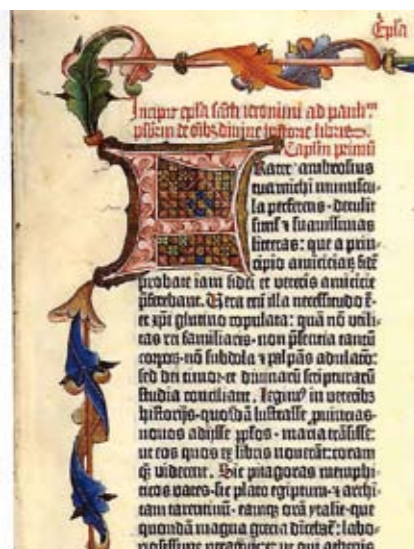 Ep̄la
Incipit ep̄la sc̄ti ieronimi ad paulinū
pb̄rm de om̄ibꝫ diuine historie libris.
Capl̄m primū
FRater ambrosius
tua michi munuscu-
la perferens· detulit
simĺ ⁊ suauissimas
litteras: que a prin-
cipio amiciciaꝝ fidē
probate iam fidei et veteris amicicie
p̄ferebant. Vera eñ illa necessitudo ē·
et xp̄i glutino copulata: quā nō vtili-
tas rei familiaris· non p̄sentia tantū
corpoꝝ· nō subdola ⁊ palpās adulaco:
sed dei timor· et diuinaꝝ scripturarū
studia conciliant. Legimꝰ in veteribꝫ
historijs· quosdā lustrasse ꝓuincias·
nouos adijsse pp̄los· maria trāsisse:
ut eos quos ex libris nouerāt: coram
qꝫ viderent. Sic pitagoras memphi-
ticos vates· sic plato egiptum· ⁊ archi-
tam tarentinū· eamqꝫ orā ytalie· que
quondā magna grecia dicebat̄: labo-
riosissime peragrauit: ut qui athenis